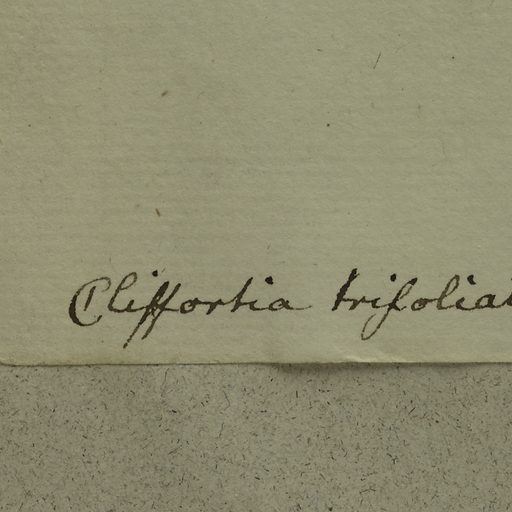 Cliffortia trifoliat